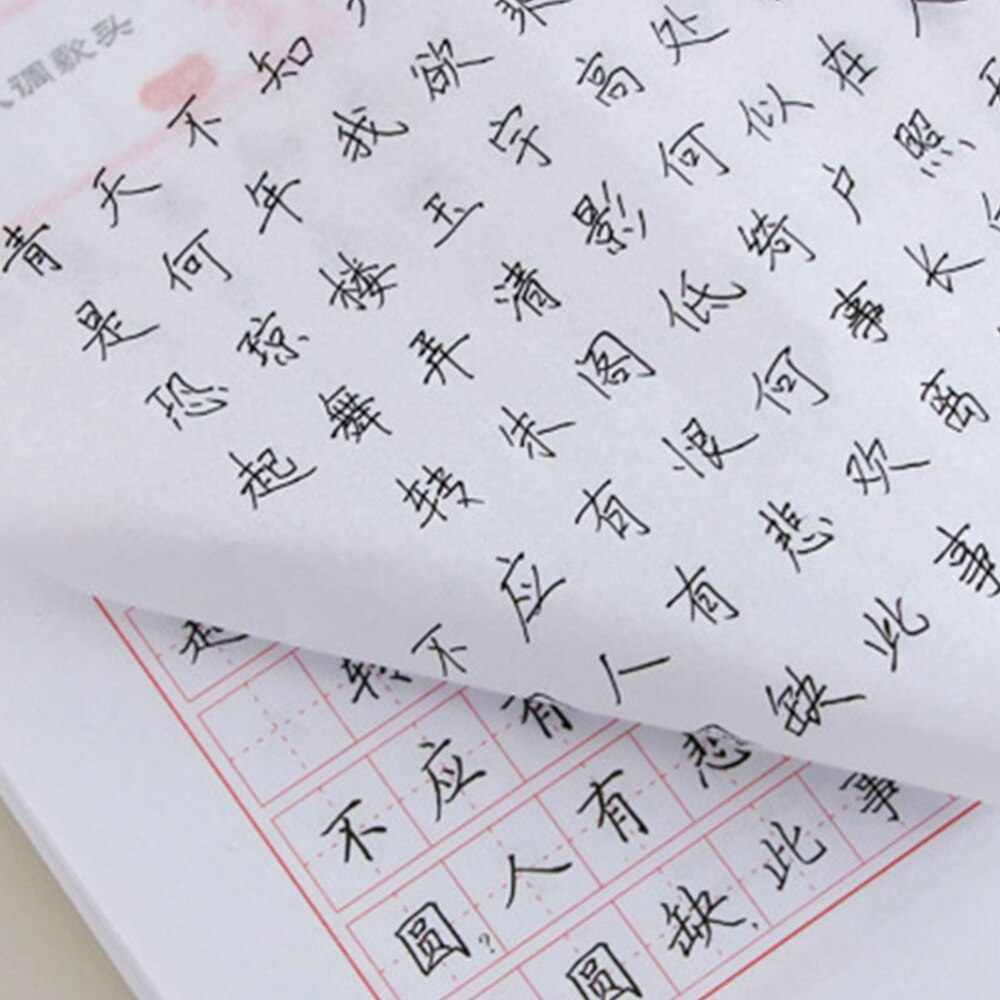 调歌头
青天不知
是何年我欲乘
恐琼楼玉宇高处
起舞弄清影何似在人
转朱阁低绮户照
不应有恨何事长
人有悲欢离
缺此事
起
转
不应有
圆?人有悲
圆缺,此事